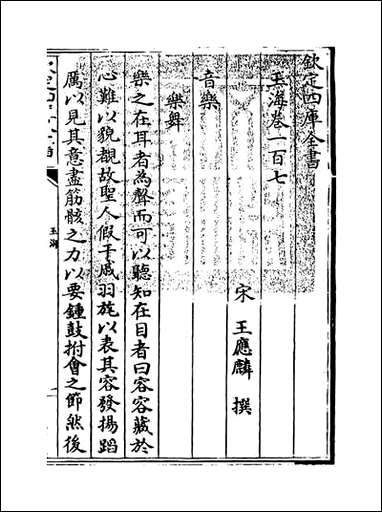 欽定四庫全書
玉海卷一百七
宋 王應麟 撰
音樂
樂舞
樂之在耳者為聲而可以聽知在目者曰容容藏於
心難以貌覩故聖人假干戚羽旄以表其容發揚蹈
厲以見其意盡筋骸之力以要鍾鼓拊會之節然後
玉海